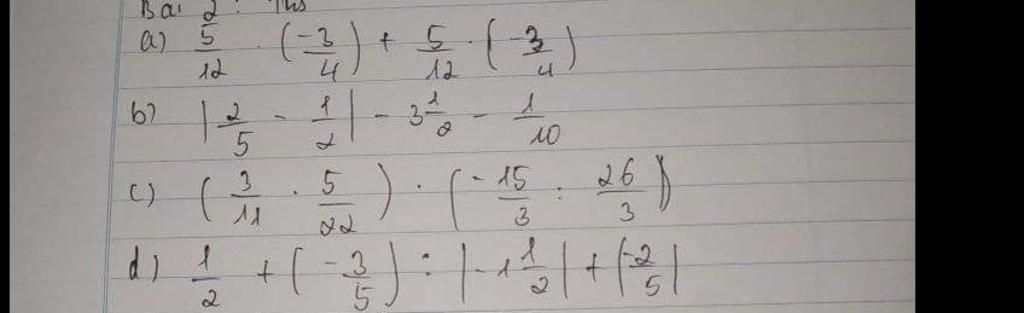 Bài 2:
a) 5/12 . (-3/4) + 5/12 . (-3/4)
b) |2/5 - 1/2| - 3 1/2 - 1/10
c) (3/11 . 5/22) . (-15/3 : 26/3)
d) 1/2 + (-3/5) : |-1 1/2| + |-2/5|